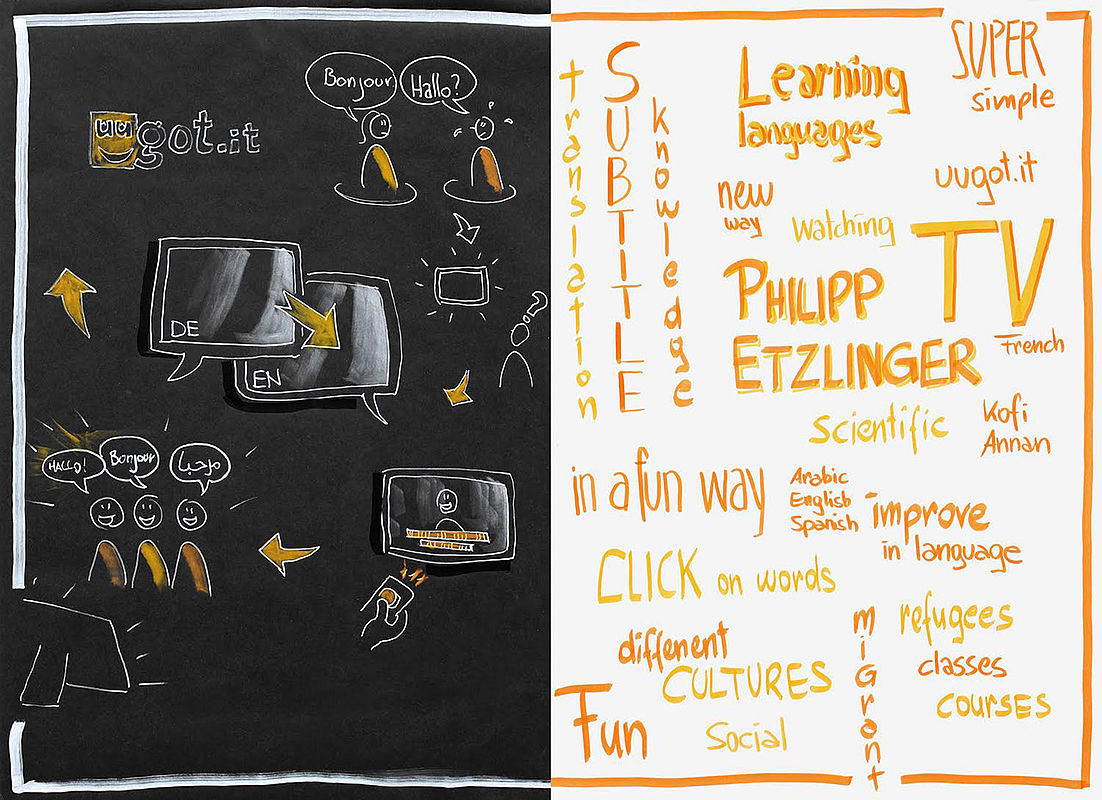 uugot.it
Bonjour
Hallo?
DE
EN
HALLO!
Bonjour
مرحبا
translation
SUBTITLE
knowledge
Learning
languages
SUPER
simple
new
way
uugot.it
watching
TV
PHILIPP
ETZLINGER
French
Scientific
Kofi
Annan
in a fun way
Arabic
English
Spanish
improve
in language
CLICK on words
different
CULTURES
Fun
Social
miGrant
refugees
classes
courses